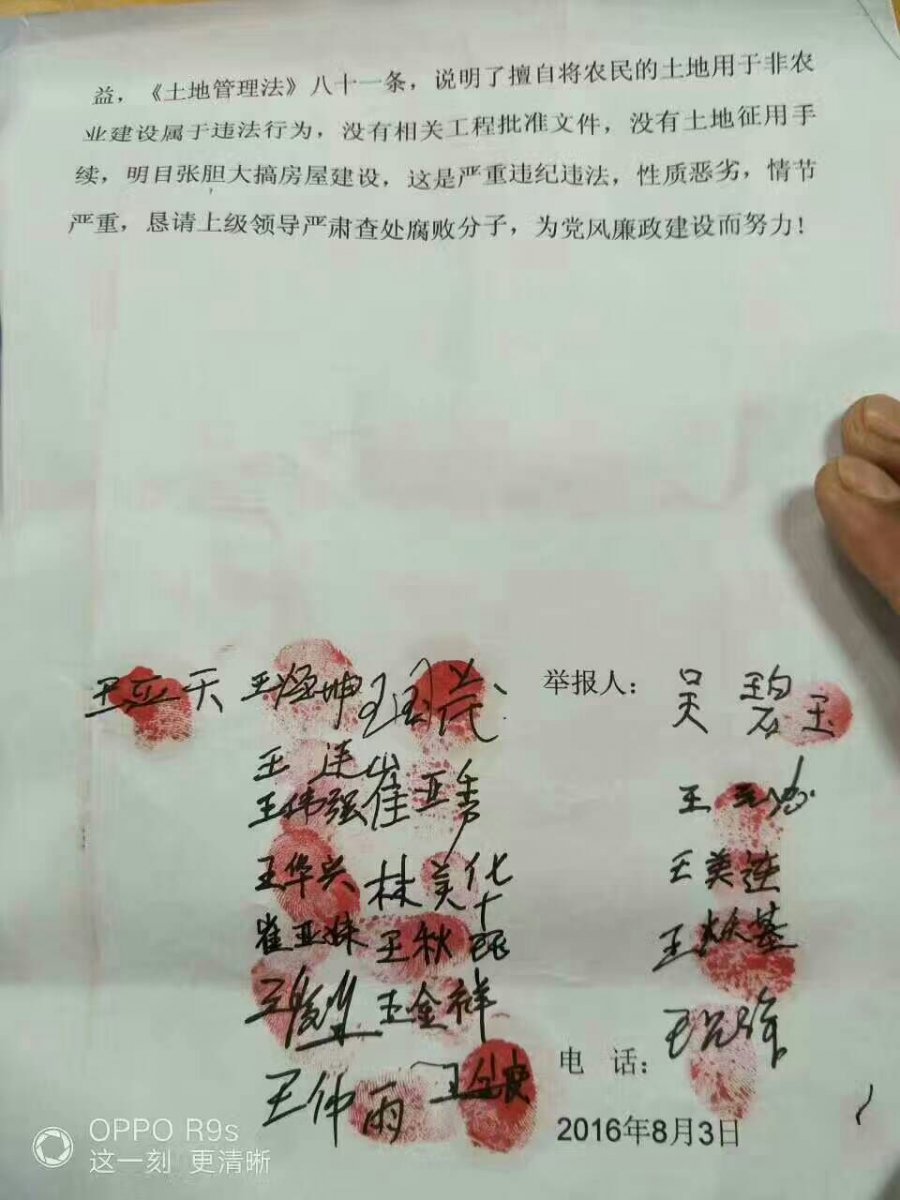 益，《土地管理法》八十一条，说明了擅自将农民的土地用于非农
业建设属于违法行为，没有相关工程批准文件，没有土地征用手
续，明目张胆大搞房屋建设，这是严重违纪违法，性质恶劣，情节
严重，恳请上级领导严肃查处腐败分子，为党风廉政建设而努力！
王亚天 王 坤 举报人： 吴碧玉
王连山
王伟强 崔亚 王
王华兴 林美华 王美连
崔亚妹 王秋 王 基
王 王金祥 王
电 话：
王仲雨 王
2016年8月3日
OPPO R9s
这一刻 更清晰